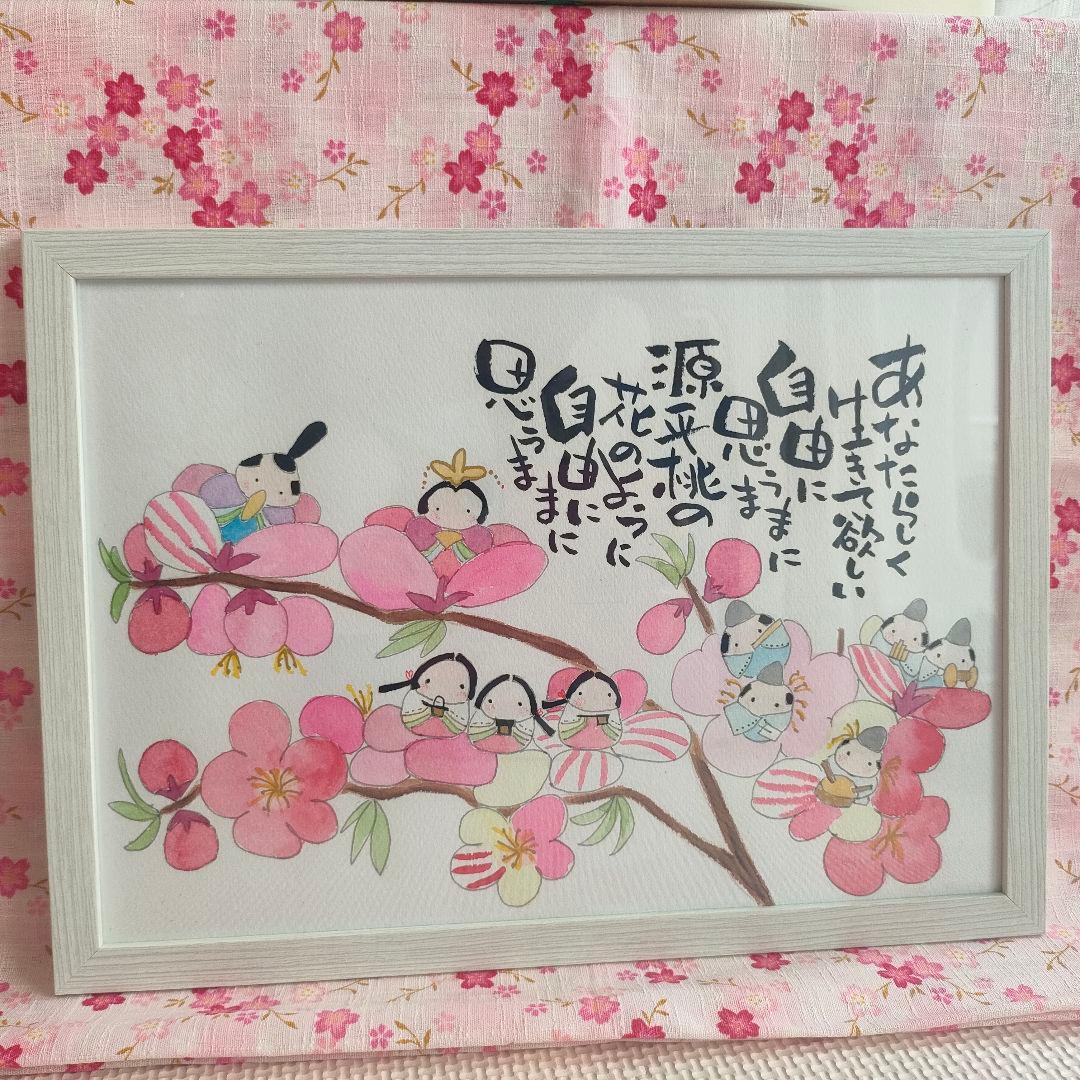 あなたらしく
生きて欲しい
自由に
思うまま
に
源平桃の
花のように
自由に
思うまま
に